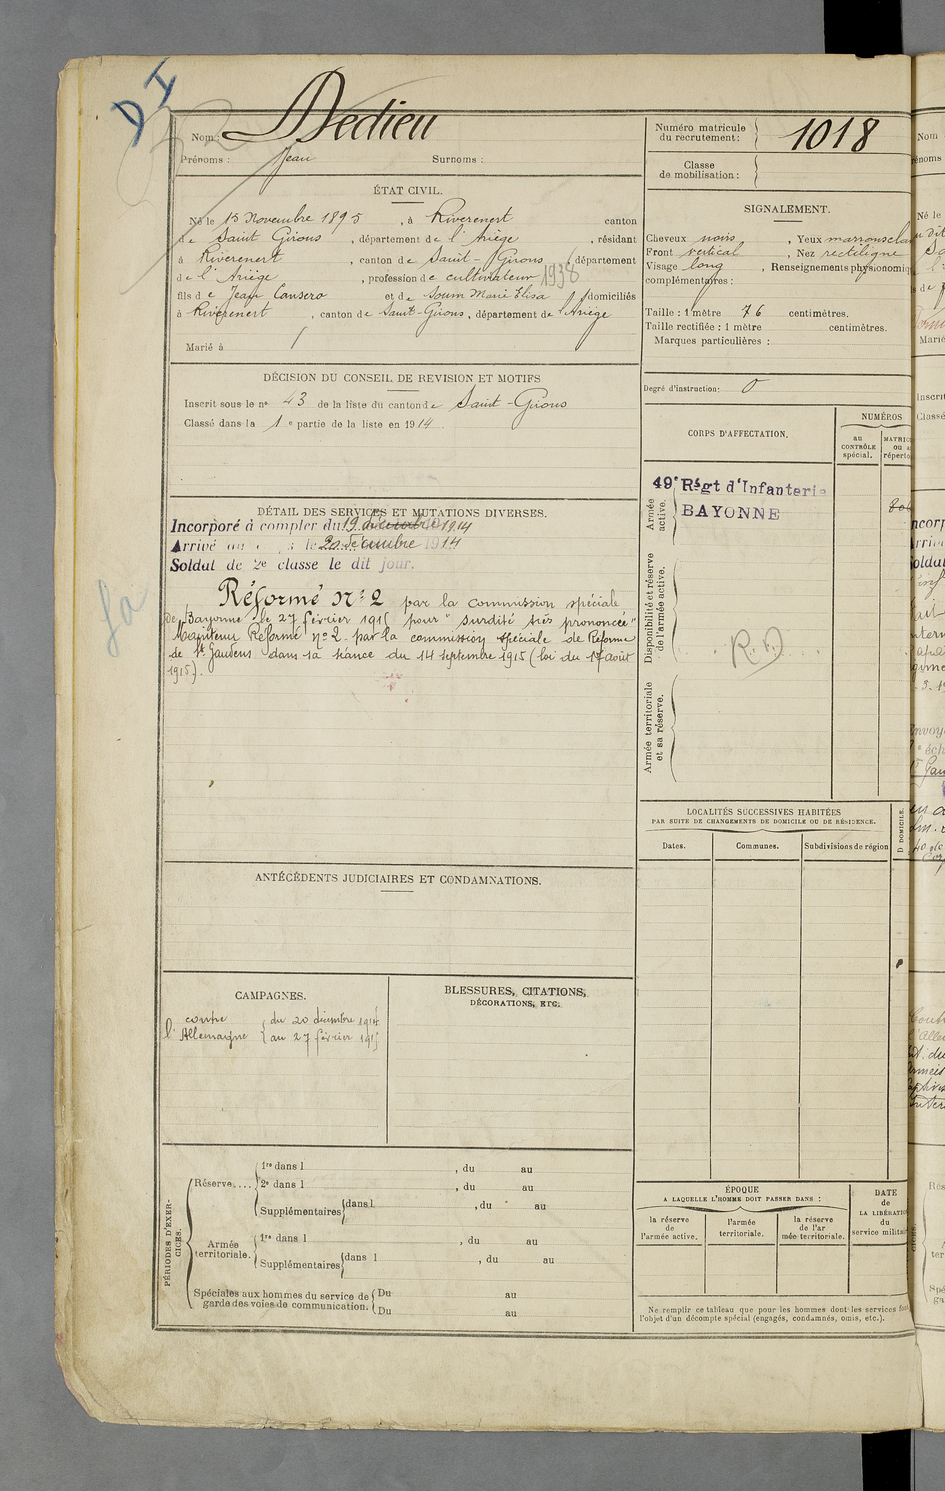 DI
Nom : Dedieu
Prénoms : Jean Surnoms :
Numéro matricule du recrutement : 1018
Classe de mobilisation :
ÉTAT CIVIL.
Né le 15 Novembre 1895, à Riverenert canton
de Saint Girons, département de l'Ariège, résidant
à Riverenert, canton de Saint-Girons, département
de l'Ariège, profession de cultivateur 1938
fils de Jean Cansero et de Soum Marie Elisa domiciliés
à Riverenert, canton de Saint-Girons, département de l'Ariège
Marié à
SIGNALEMENT.
Cheveux noirs, Yeux marrons
Front vertical, Nez rectiligne
Visage long, Renseignements physionomiq
complémentaires :
Taille : 1 mètre 76 centimètres.
Taille rectifiée : 1 mètre centimètres.
Marques particulières :
DÉCISION DU CONSEIL DE REVISION ET MOTIFS
Inscrit sous le n° 43 de la liste du canton de Saint-Girons
Classé dans la 1e partie de la liste en 1914.
Degré d'instruction : 0
CORPS D'AFFECTATION.
NUMÉROS
au CONTRÔLE spécial.
MATRIC
répertoi
Armée active.
49e Régt d'Infanterie
BAYONNE
Disponibilité et réserve de l'armée active.
R.D
Armée territoriale et sa réserve.
DÉTAIL DES SERVICES ET MUTATIONS DIVERSES.
Incorporé à compter du 19 décembre 1914
Arrivé au le 20 décembre 1914
Soldat de 2e classe le dit jour.
Réformé N° 2 par la commission spéciale
de Bayonne le 27 février 1915 pour "surdité très prononcée"
Maintenu Réformé n° 2 par la commission spéciale de Réforme
de St Gaudens dans sa séance du 14 septembre 1915 (loi du 17 août
1915).
LOCALITÉS SUCCESSIVES HABITÉES
PAR SUITE DE CHANGEMENTS DE DOMICILE OU DE RÉSIDENCE.
Dates. Communes. Subdivisions de région
D DOMICILE.
ANTÉCÉDENTS JUDICIAIRES ET CONDAMNATIONS.
CAMPAGNES.
contre
l'Allemagne
du 20 décembre 1914
au 27 février 1915
BLESSURES, CITATIONS,
DÉCORATIONS, ETC.
PÉRIODES D'EXERCICES.
Réserve....
1re dans l , du au
2e dans l , du au
Supplémentaires dans l , du au
Armée territoriale.
1re dans l , du au
Supplémentaires dans l , du au
Spéciales aux hommes du service de garde des voies de communication.
Du au
Du au
ÉPOQUE
A LAQUELLE L'HOMME DOIT PASSER DANS :
la réserve de l'armée active.
l'armée territoriale.
la réserve de l'armée territoriale.
DATE de LA LIBÉRATIO du service militai
Ne remplir ce tableau que pour les hommes dont les services font
l'objet d'un décompte spécial (engagés, condamnés, omis, etc.).